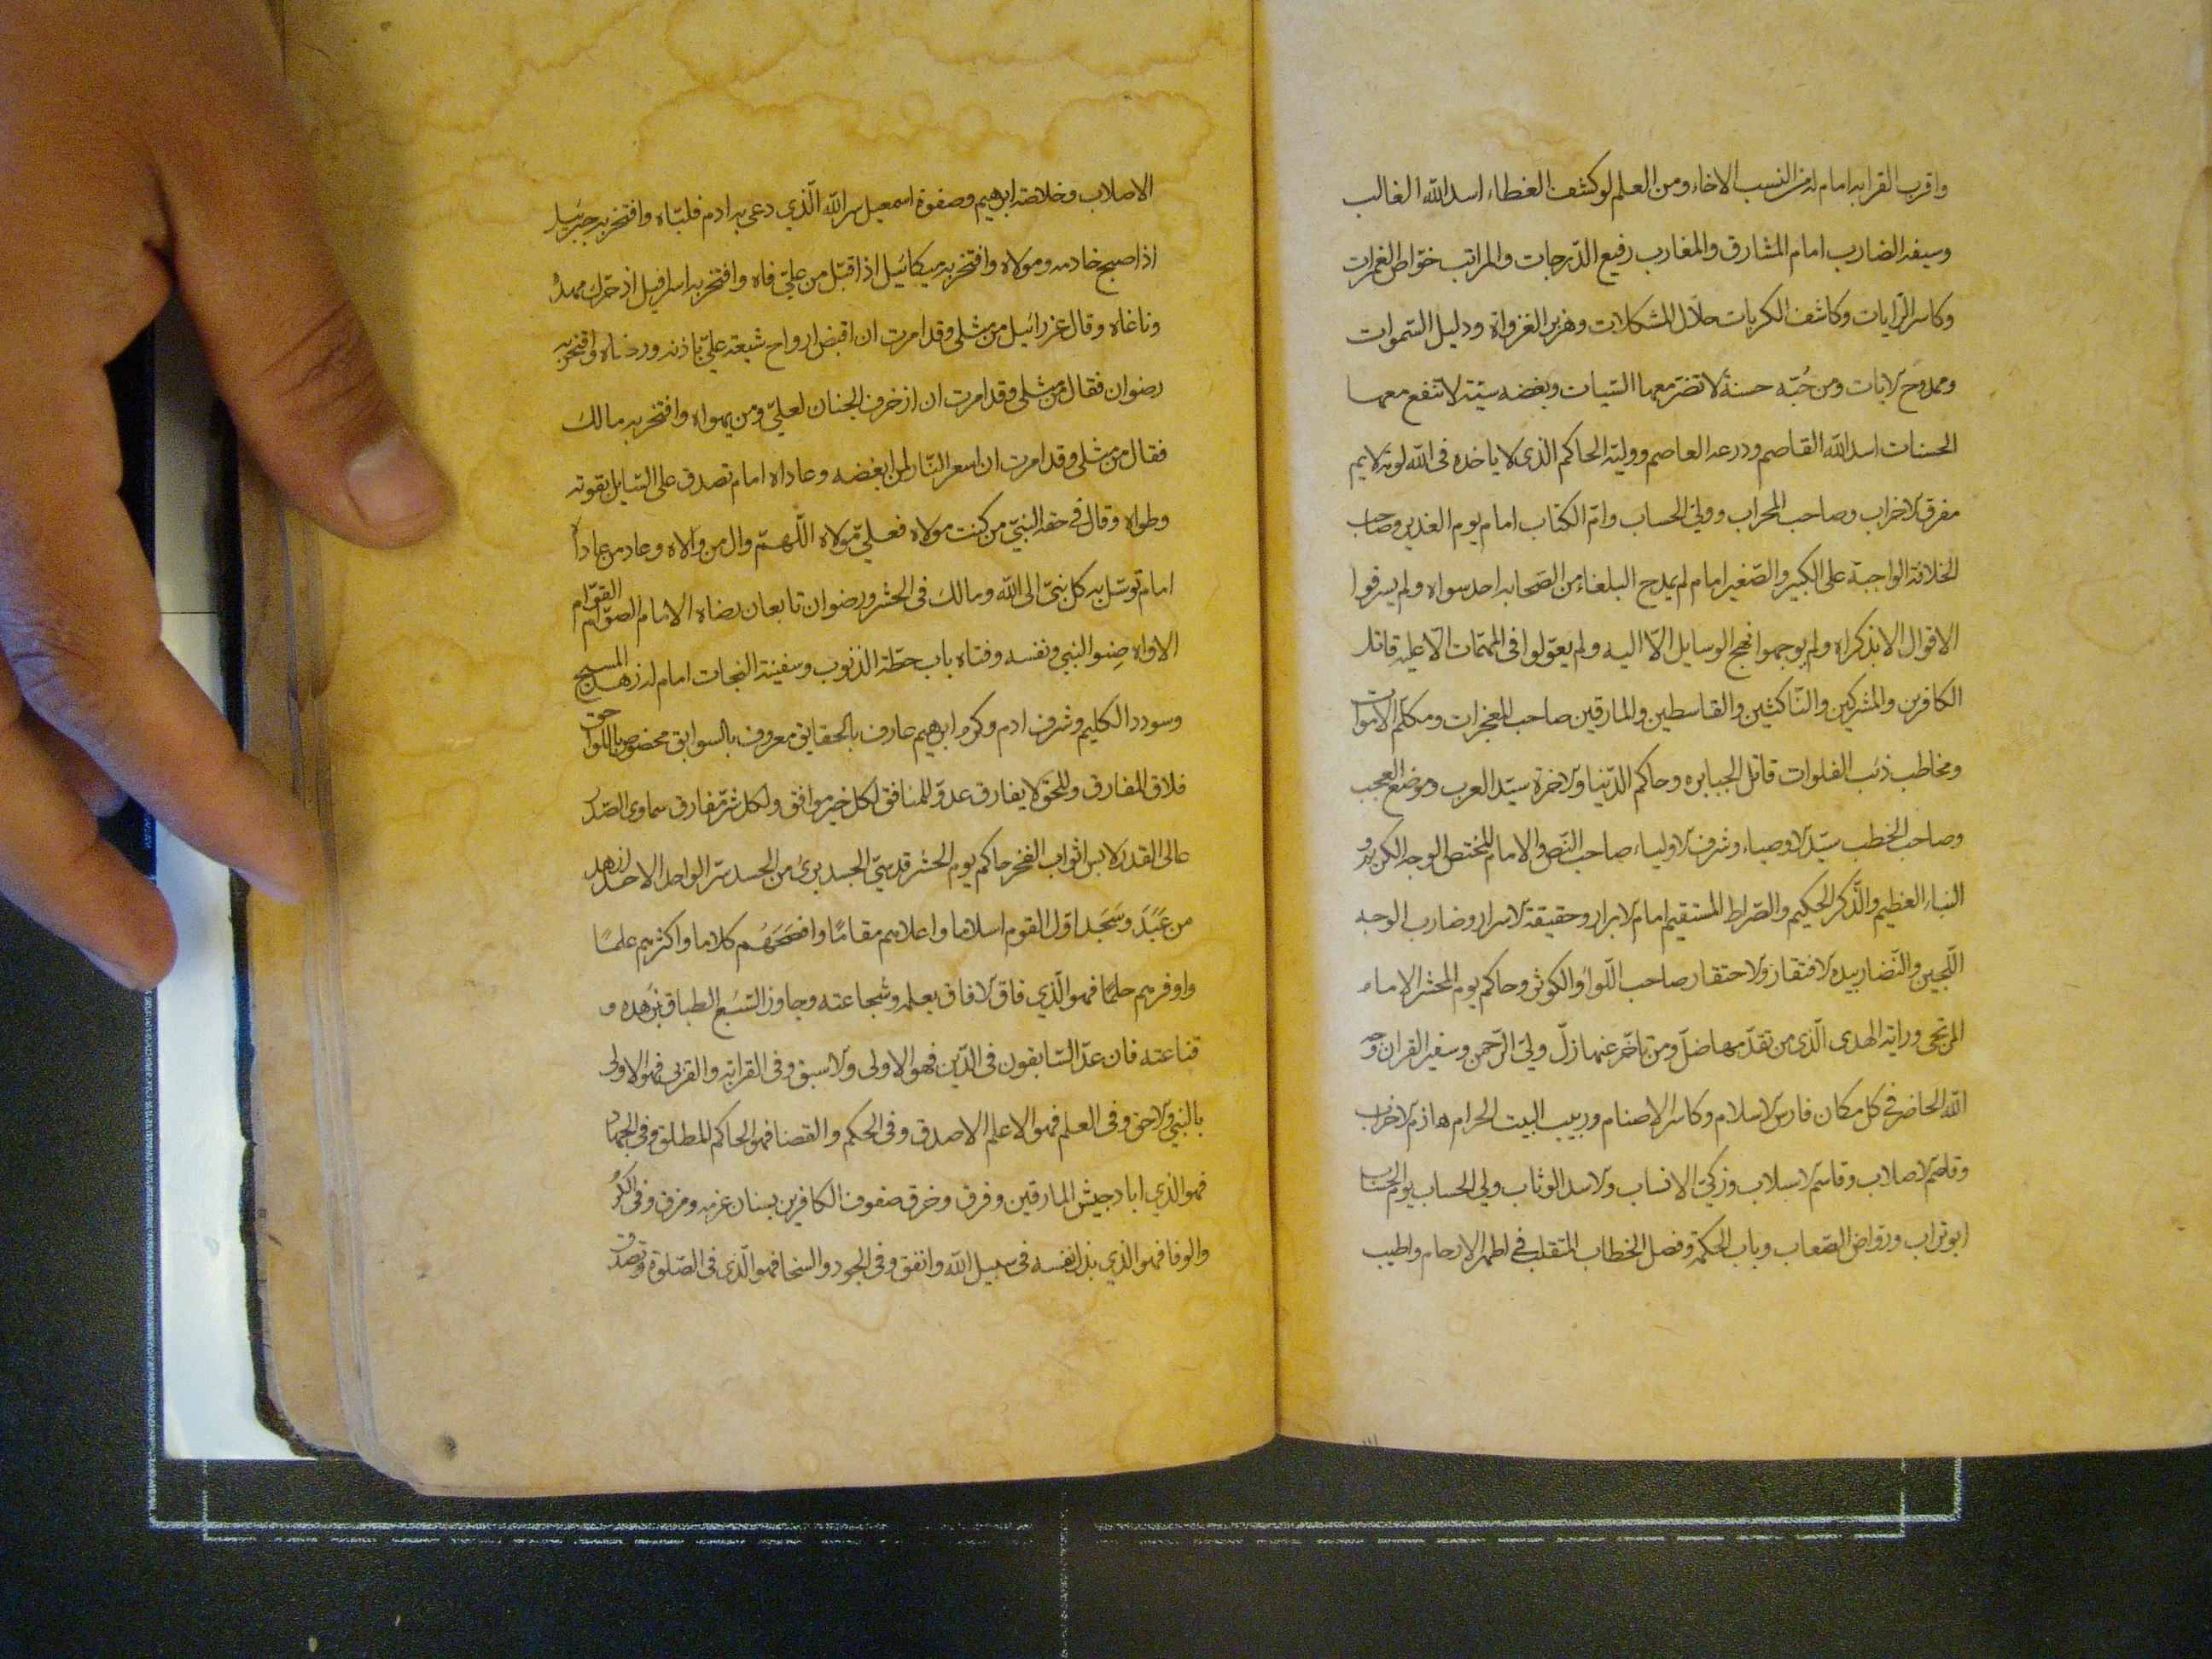 واقرب القرابه امام له من النسب الاخاء ومن العلم لو كشف الغطاء اسد الله الغالب
وسيفه الضارب امام المشارق والمغارب رفيع الدّرجات والمراتب خوّاص الغمرات
وكاسر الرّايات وكاشف الكربات حلّال المشكلات وهزبر الغزواة ودليل السّموات
وممدوح الايات ومن حُبّه حسنة لا تضرّ معها السّيات وبغضه سيّئة لا تنفع معها
الحسنات اسد الله القاصم ودرعه العاصم ووليّه الحاكم الذى لا ياخذه فى الله لومة لايم
مفرق الاخراب وصاحب المحراب وولىّ الحساب وامّ الكتاب امام يوم الغدير وصاحب
الخلافة الواجبة على الكبير والصّغير امام لم يمدح البلغاء من الصّحابه احد سواه ولم يسرفوا
الاقوال الا بذكراه ولم يوجهوا نهج الوسايل الّا اليه ولم يعوّلوا فى المهمّات الّا عليه قاتل
الكافرين والمشركين والنّاكثين والقاسطين والمارقين صاحب المعجزات ومكلّم الاموات
ومخاطب ذئب الفلوات قاتل الجبابره وحاكم الدّنيا والاخرة سيّد العرب وموضع العجب
وصاحب الخطب سيّد الاوصياء وشرف الاولياء صاحب النّص والامام المختص الوجه الكريم و
النباء العظيم والذّكر الحكيم والصّراط المستقيم امام الابرار وحقيقة الاسرار وضارب الوجه
اللّجين والنّضار بيد الافتقار والاحتقار صاحب اللّواء والكوثر وحاكم يوم المحشر الامام
المرتجى وراية الهدى الّذى من تقدّمها ضلّ ومن تاخّر عنها زلّ ولىّ الرّحمن وسفير القران وجه
الله الحاضر فى كل مكان فارس الاسلام وكاسر الاصنام وربيب البيت الحرام هاذم الاخراب
وقاصم الاصلاب وقاسم الاسلاب وزكىّ الانساب والاسد الوثاب ولي الحساب يوم الحساب
ابو تراب وروّاض الصّعاب وباب الحكمة وفصل الخطاب المتقلب فى اطهر الارحام واطيب
الاصلاب وخلاصة ابرهيم وصفوة اسمعيل سر الله الّذي دعى به ادم فلبّاه وافتخر به جبرئيل
اذ اصبح خادمه ومولاه وافتخر به ميكائيل اذ اقبّل من علىّ فاه وافتخر به اسرافيل اذ حرّك مهده
وناغاه وقال عزرائيل من مثلى وقد امرت ان اقبض ارواح شيعة علىّ باذنه ورضاه وافتخر به
رضوان فقال من مثلى وقد امرت ان ازخرف الجنان لعلىّ ومن يهواه وافتخر به مالك
فقال من مثلى وقد امرت ان اسعر النّار لمن ابغضه وعاداه امام تصدق على السّايل بقوته
وطواه وقال فى حقه النبىّ من كنت مولاه فعلىّ مولاه اللّهمّ وال من والاه وعاد من عاداه
امام توسّل به كل نبىّ الى الله ومالك فى الحشر ورضوان تابعان رضاه الامام الصوّام القوّام
الاواه صِنو النبي ونفسه وفتاه باب حطّة الذنوب وسفينة النجات امام له زهد المسيح
وسودد الكليم وشرف ادم وكرم ابرهيم عارف بالحقايق معروف بالسوابق مخصوص باللواحق
فلاق المفارق وللحق لا يفارق عدوّ للمنافق لكل خير موافق ولكل شرّ مفارق سماوى الصّدر
عالى القدر لابس اثواب الفخر حاكم يوم الحشر قدسىّ الجسد برئ من الحسد سرّ الواحد الاحد ازهد
من عَبَدَ وسَجَد اوّل القوم اسلاما واعلاهم مقامًا وافصَحَهُم كلاما واكثرهم علمًا
واوفرهم حلمًا فهو الّذي فاق الافاق بعلمه وشجاعته وجاوز السّبع الطباق بزهده و
قناعته فان عدّ السّابقون فى الدّين فهو الاولى والاسبق وفى القرابة والقربى فهو الاولى
بالنبي والاحق وفى العلم فهو الاعلم الاصدق وفى الحكم والقضا فهو الحاكم المطلق وفى الجهاد
فهو الذي اباد جيش المارقين وفرق وخرق صفوف الكافرين بسنان عزمه ومزق وفى الكرم
والوفا فهو الذي بذل نفسه فى سبيل الله وانفق وفى الجود والسخا فهو الّذى فى الصّلوة تصدق